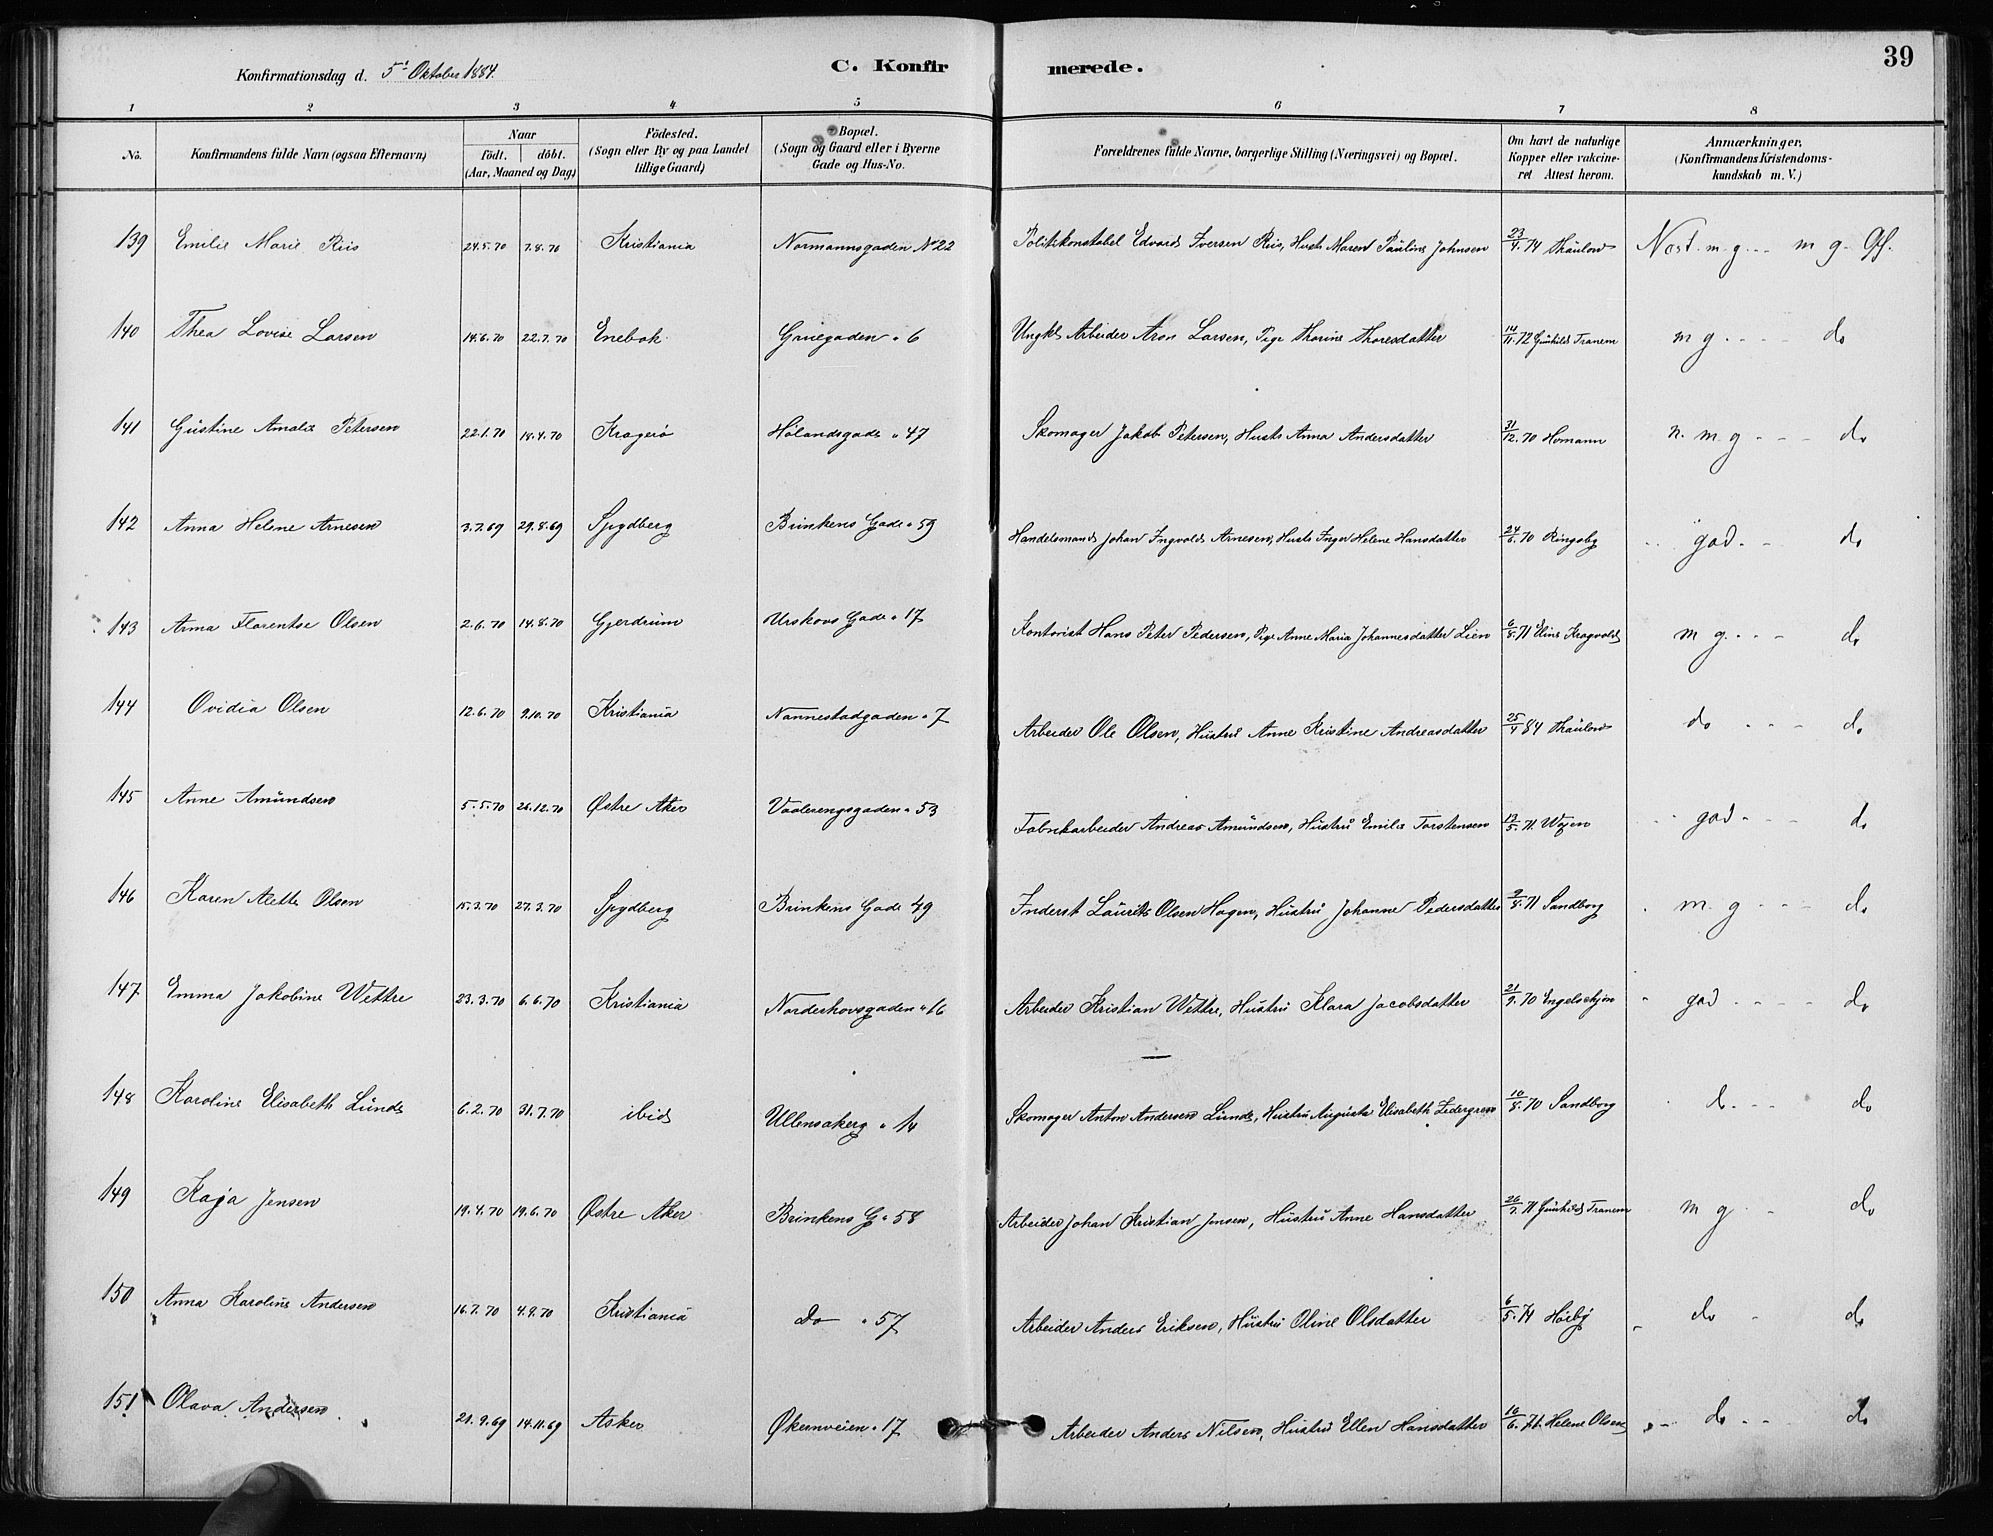 39
Konfirmationsdag d. 5t Oktober 1884.
C. Konfirmerede.
1 2 3 4 5 6 7 8
No. | Konfirmandens fulde Navn (ogsaa Efternavn) | Naar födt. döbt. (Aar, Maaned og Dag) | Födested. (Sogn eller By og paa Landet tillige Gaard) | Bopæl. (Sogn og Gaard eller i Byerne Gade og Hus-No. | Forældrenes fulde Navne, borgerlige Stilling (Næringsvei) og Bopæl. | Om havt de naturlige Kopper eller vakcineret Attest herom. | Anmærkninger, (Konfirmandens Kristendomskundskab m. V.)
139 Emilie Marie Riis 24.5.70 7.8.70 Kristiania Normannsgaden No 22 Politikonstabel Edvard Iversen Riis, Hust. Maren Pauline Johnsen 23/4.74 Thaulow Nest. m. g. - - m g. Gf.
140 Thea Lovise Larsen 14.6.70 22.7.70 Enebak Gruegaden " 6 Ungkl Arbeider Aron Larsen, Pige Thorine Thoresdatter 14/11.72 Gunhild Tranem m g - - - do
141 Gustine Amalie Petersen 22.1.70 18.4.70 Kragerö Hölandsgade " 47 Skomager Jakob Petersen, Hustr Anna Andersdatter 31/12.70 Homann n. m. g - - - do
142 Anna Helene Arnesen 3.7.69 29.8.69 Spydberg Brinkens Gade " 59 Handelsmand Johan Ingvald Arnesen, Hustr Inger Helene Hansdatter 24/6.70 Ringsby - - god - - do
143 Anna Florentse Olsen 2.6.70 14.8.70 Gjerdrum Urskovs Gade " 17 Kontorist Hans Peter Pedersen, Pige Anne Maria Johannesdatter Lien 6/8.71 Eline Kragvold m g. - - - do
144 Ovidia Olsen 12.6.70 9.10.70 Kristiania Nannestadgaden " 7 Arbeider Ole Olsen, Hustru Anne Kristine Andreasdatter 25/4 84 Thaulow do - - - do
145 Anne Amundsen 5.5.70 26.12.70 Østre Aker Vaalerengsgaden " 53 Fabrikarbeider Andreas Amundsen, Hustru Emilie Torstensen 17/5.71. - - god - - - do
146 Karen Alette Olsen 15.3.70 27.3.70 Spydberg Brinkens Gade 49 Inderst Lauritz Olsen Hagen, Hustru Johanne Pedersdatter 9/8.71 Sandborg m. g - - - do
147 Emma Jakobine Wettre 23.3.70 6.6.70 Kristiania Norderhovsgaden " 16 Arbeider Kristian Wettre, Hustru Klara Jacobsdatter 21/9.70 Engelschjøn " god - - - - do
148 Karoline Elisabeth Lunde 6.2.70 31.7.70 ibid Ullensakerg " 14 Skomager Anton Andersen Lunde, Hustru Augusta Elisabeth Zedergren 10/8.70 Sandborg do - - - do
149 Kaja Jensen 19.4.70 19.6.70 Østre Aker Brinkens G " 58 Arbeider Johan Kristian Jensen, Hustru Anne Hansdatter 26/7.71 Gunhild Tranem m g - do
150 Anna Karoline Andersen 16.7.70 4.9.70 Kristiania Do " 57 Arbeider Anders Eriksen, Hustru Oline Olsdatter 6/5.74 Höiby " do - do
151 Olava Andersen 21.9.69 14.11.69 Asker Økernveien " 17 Arbeider Anders Nilsen, Hustru Ellen Hansdatter 10/6.71. Helene Olsen " - do - - do